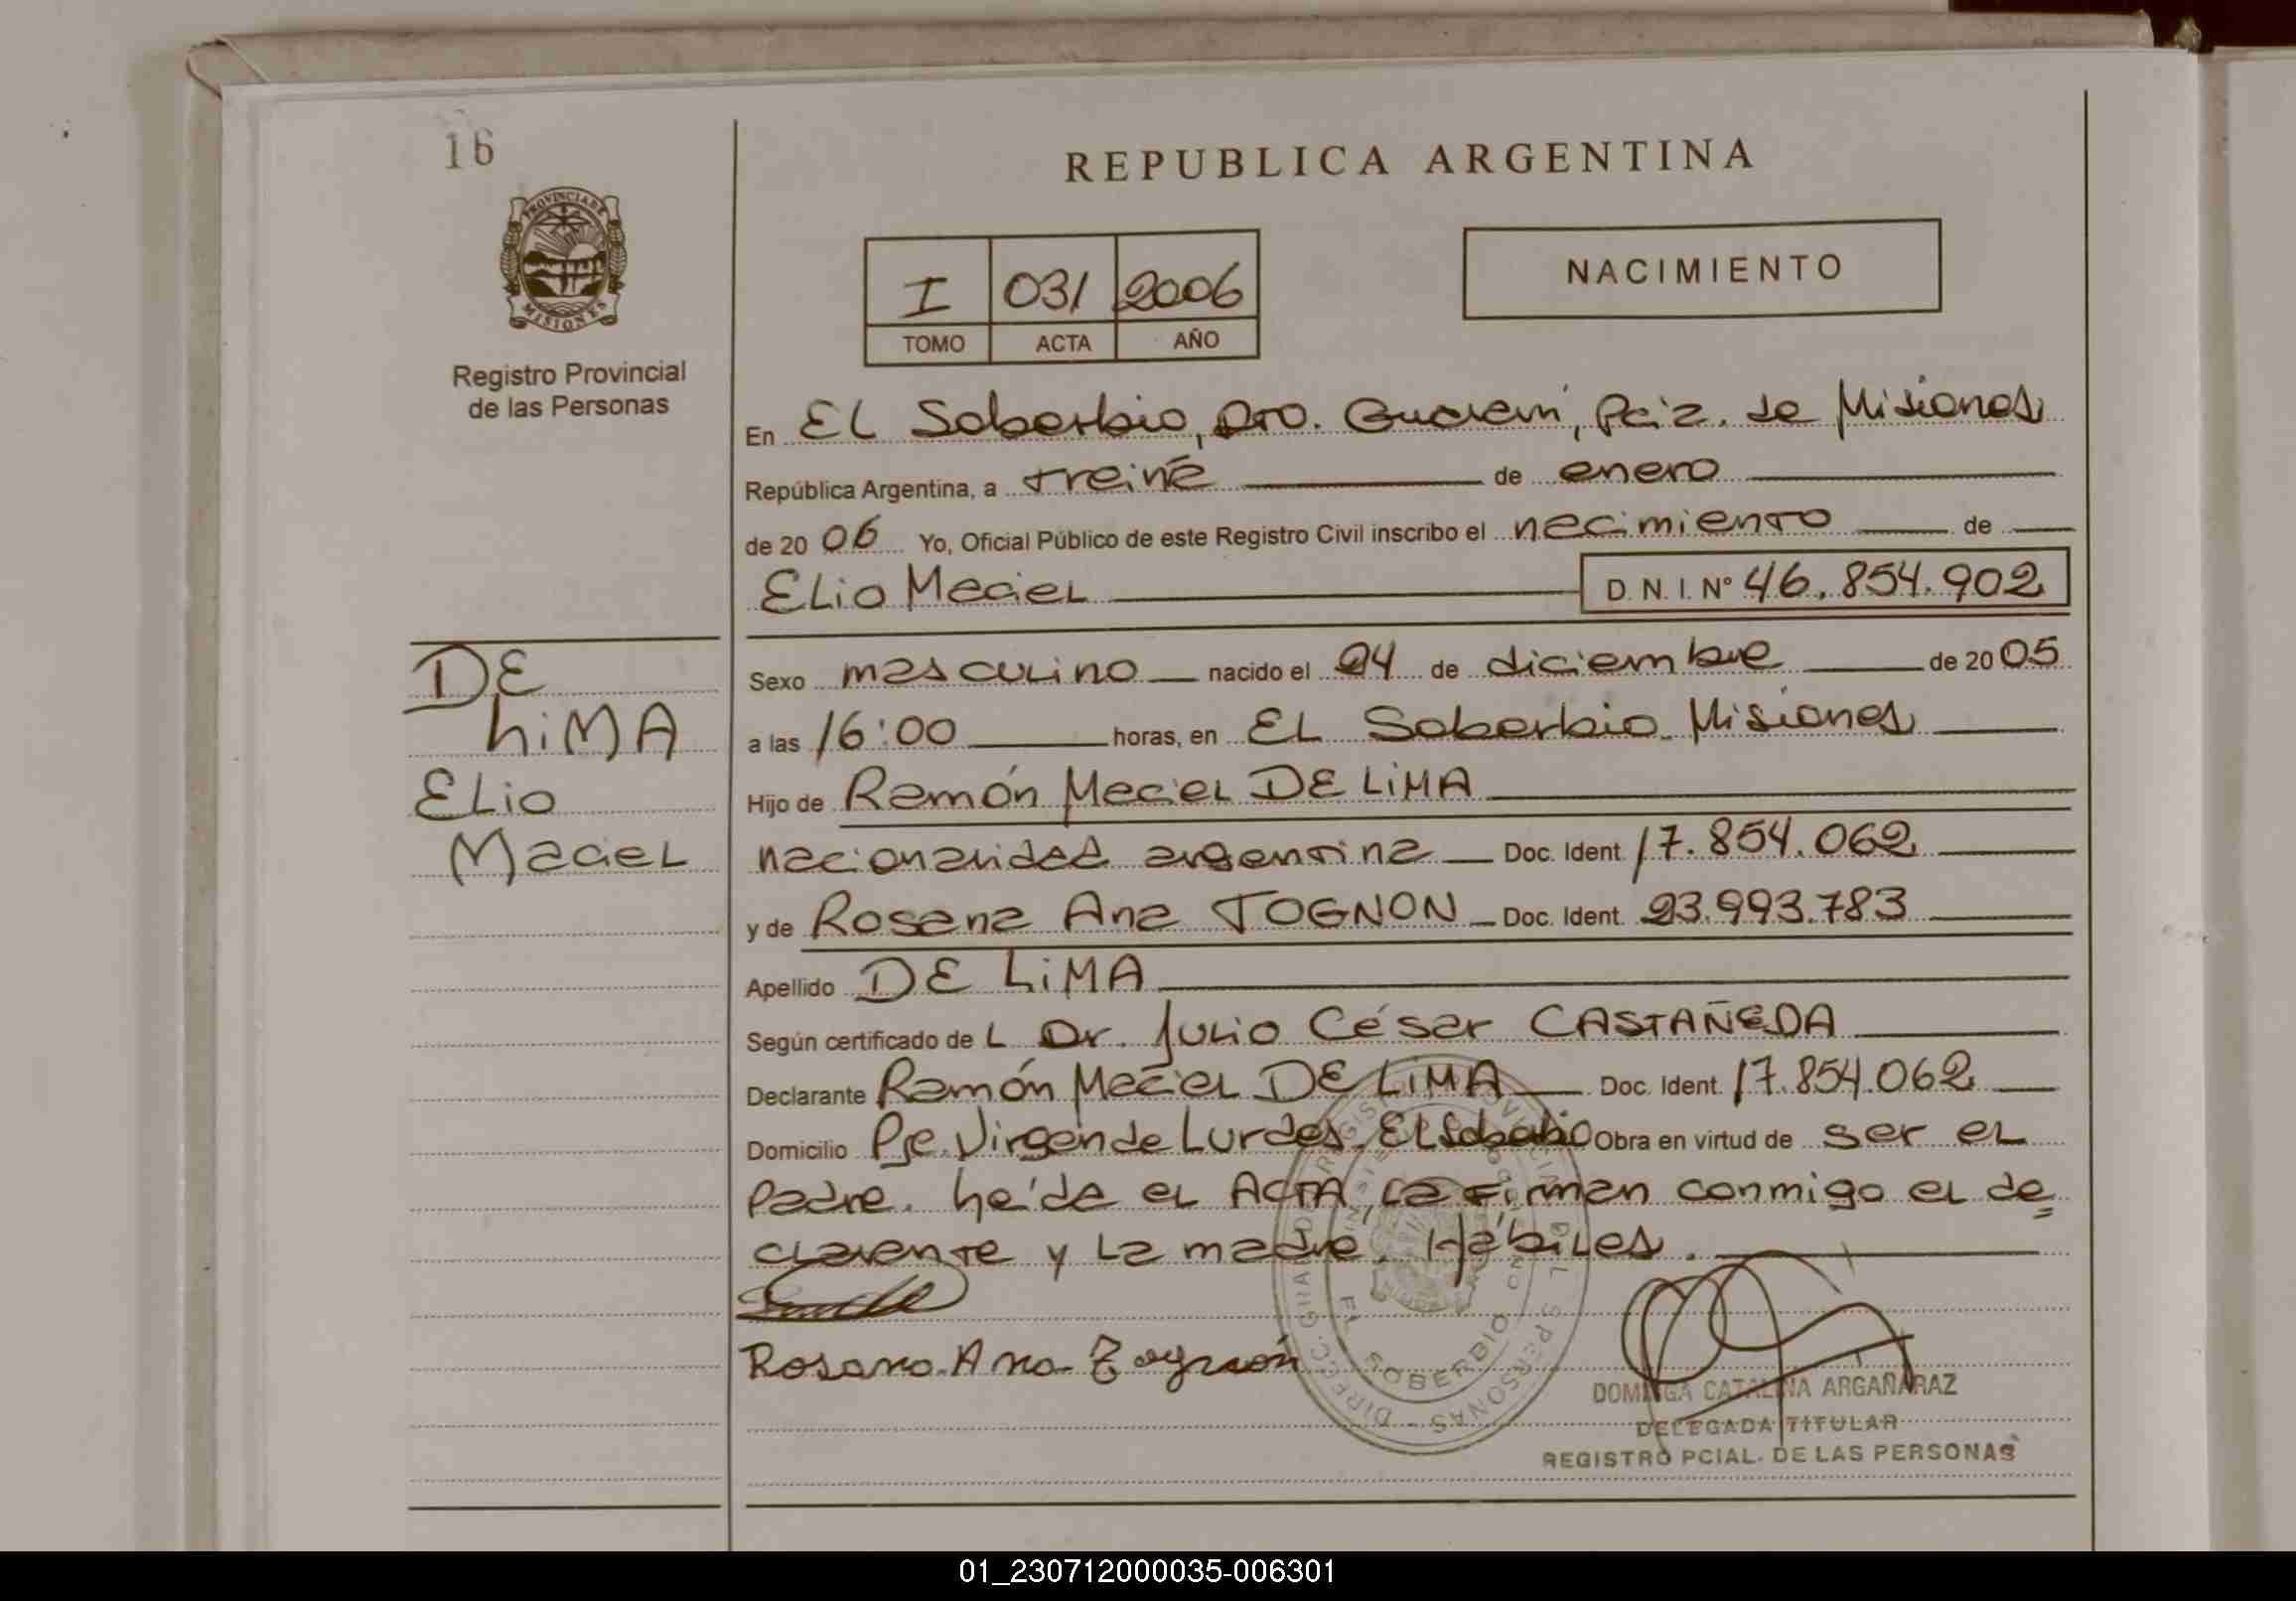 16
PROVINCIA DE
MISIONES
Registro Provincial
de las Personas
REPUBLICA ARGENTINA
I 031 2006
TOMO ACTA AÑO
NACIMIENTO
En EL Soberbio, Dto. Guaraní, Pcia. de Misiones
República Argentina, a treinta de enero
de 2006 Yo, Oficial Público de este Registro Civil inscribo el nacimiento de
Elio Maciel D. N. I. N° 46.854.902
DE
LiMA
ELio
Maciel
Sexo masculino nacido el 24 de diciembre de 2005
a las 16:00 horas, en EL Soberbio Misiones
Hijo de Ramón Maciel DE LiMA
nacionalidad argentina Doc. Ident. 17.854.062
y de Rosana Ana TOGNON Doc. Ident. 23.993.783
Apellido DE LiMA
Según certificado de L Dr. Julio César CASTAÑEDA
Declarante Ramón Maciel DE LiMA Doc. Ident. 17.854.062
Domicilio Pje. Virgen de Lurdes, El Soberbio Obra en virtud de ser el
Padre. Leída el ACTA, la firman conmigo el de=
clarante y la madre. Hábiles.
Rosana Ana Tognón
EL SOBERBIO
DOMINGA CATALINA ARGAÑARAZ
DELEGADA TITULAR
REGISTRO PCIAL. DE LAS PERSONAS
01_230712000035-006301